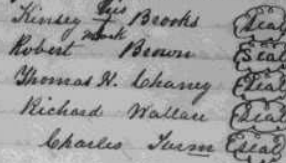 Kinsey his mark Brooks Seal
Robert Brown Seal
Thomas N. Chaney Seal
Richard Wallace Seal
Charles Turm Seal